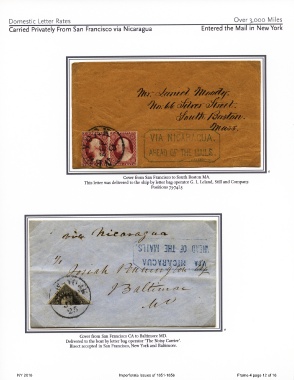 Domestic Letter Rates
Over 3,000 Miles
Carried Privately From San Francisco via Nicaragua
Entered the Mail in New York
Mr. Jared Moody
No. 66 Silver Street,
South Boston
Mass.
VIA NICARAGUA
AHEAD OF THE MAILS
Cover from San Francisco to South Boston MA
This letter was delivered to the ship by letter bag operator G. L. Leland, Still and Company
Positions
via Nicaragua
VIA NICARAGUA
AHEAD OF THE MAILS
To
Baltimore
Cover from San Francisco CA to Baltimore MD.
Delivered to the boat by letter bag operator 'The Noisy Carrier'.
Bisect accepted in San Francisco, New York and Baltimore.
NY 2016
Imperforate Issues of 1851-1856
Frame 4 page 12 of 16